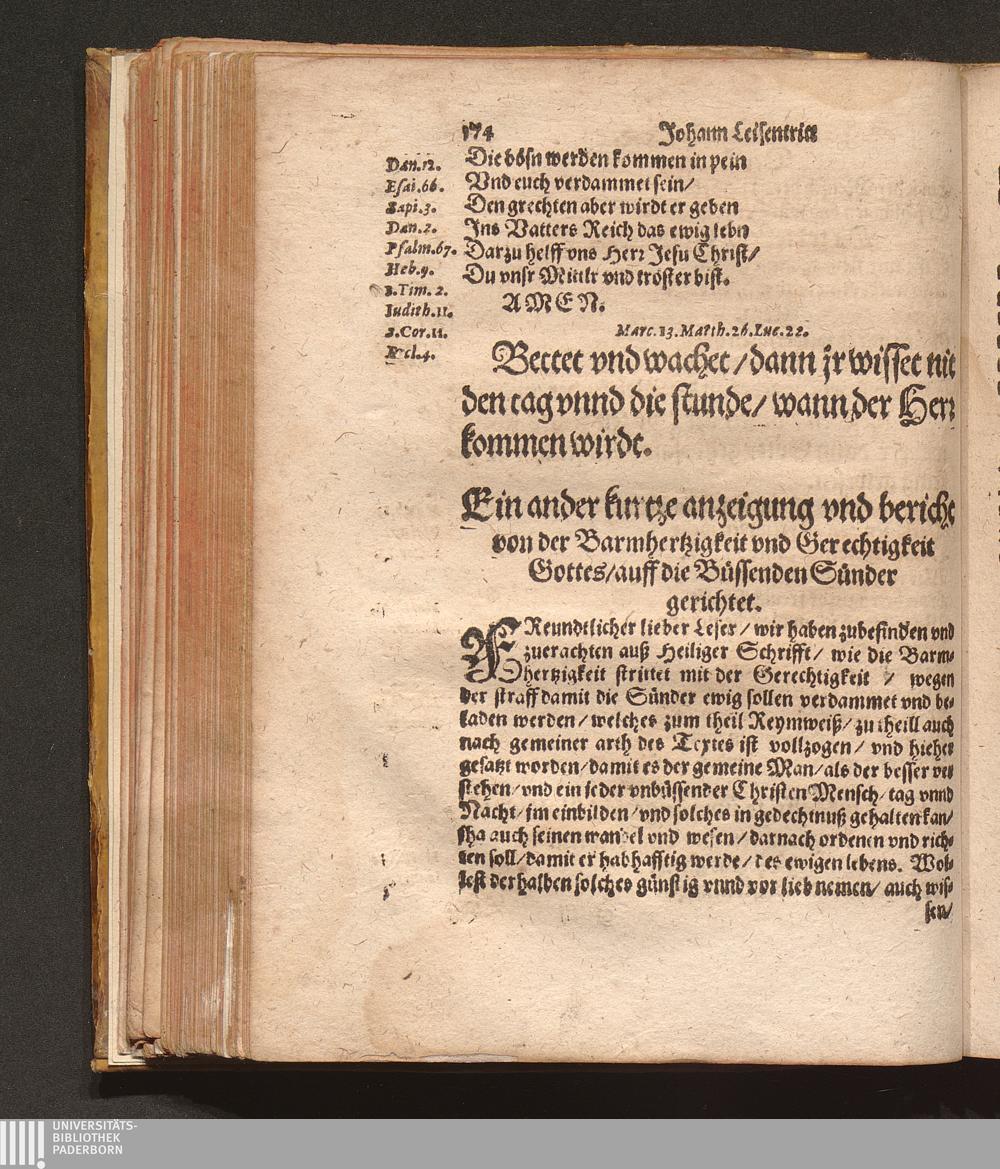 174 Johann Leisentritt
Dan.12.
Esai.66.
Sapi.3.
Dan.2.
Psalm.67.
Heb.9.
Tim.2.
Iudith.11.
Cor.11.
Die bösn werden kommen in pein
Vnd euch verdammet sein/
Den grechten aber wirdt er geben
Ins Vatters Reich das ewig lebn
Darzu helff vns Herr Jesu Christ/
Du vnsr Mittlr vnd tröster bist.
AMEN.
Marc.13.Matth.26.Luc.22.
Bettet vnd wachet/dann jr wisset nit
den tag vnnd die stunde/ wann der Herr
kommen wirdt.
Ein ander kurtze anzeigung vnd bericht
von der Barmhertzigkeit vnd Gerechtigkeit
Gottes/auff die Büssenden Sünder
gerichtet.
FReundtlicher lieber Leser/ wir haben zubefinden vnd
zuerachten auß Heiliger Schrifft/ wie die Barm-
hertzigkeit strittet mit der Gerechtigkeit / wegen
der straff damit die Sünder ewig sollen verdammet vnd be-
laden werden/ welches zum theil Reymweiß/ zu theill auch
nach gemeiner arth des Textes ist vollzogen/ vnd hieher
gesatzt worden/damit es der gemeine Man/als der besser ver
stehen/vnd ein jeder vnbüssender Christen Mensch/ tag vnnd
Nacht/ jm einbilden/vnd solches in gedechtnuß gehalten kan/
auch seinen wandel vnd wesen/ darnach ordenen vnd rich-
ten soll/damit er habhafftig werde/ des ewigen lebens. Wol-
lest derhalben solches günstig vnnd vor lieb nemen/ auch wis-
sen/
UNIVERSITÄTS-
BIBLIOTHEK
PADERBORN